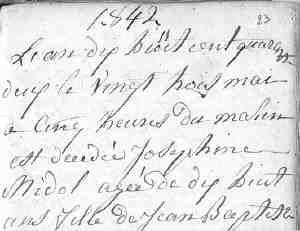 1842
23
L'an dix huit cent quarante
deux le vingt trois mai
a cinq heures du matin
est decédée Josephine
Midol agée de dix huit
ans fille de Jean Baptiste